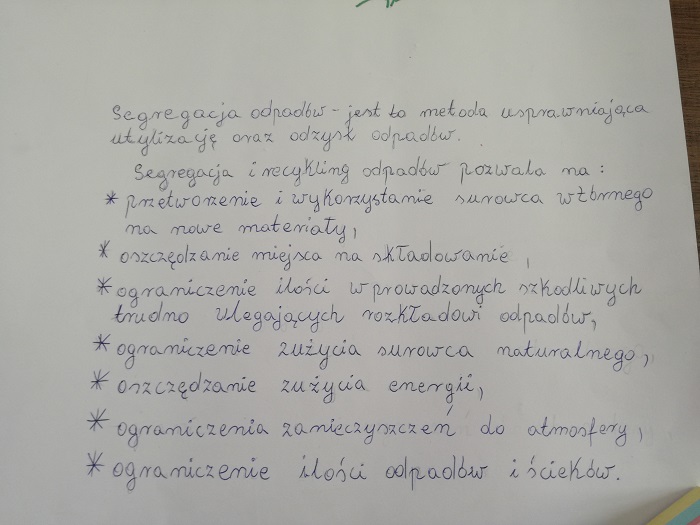 Segregacja odpadów - jest to metoda usprawniająca
utylizację oraz odzysk odpadów.
Segregacja i recykling odpadów pozwala na :
* przetworzenie i wykorzystanie surowca wtórnego
na nowe materiały,
* oszczędzanie miejsca na składowanie,
* ograniczenie ilości wprowadzonych szkodliwych
trudno ulegających rozkładowi odpadów,
* ograniczenie zużycia surowca naturalnego,
* oszczędzanie zużycia energii,
* ograniczenia zanieczyszczeń do atmosfery,
* ograniczenie ilości odpadów i ścieków.